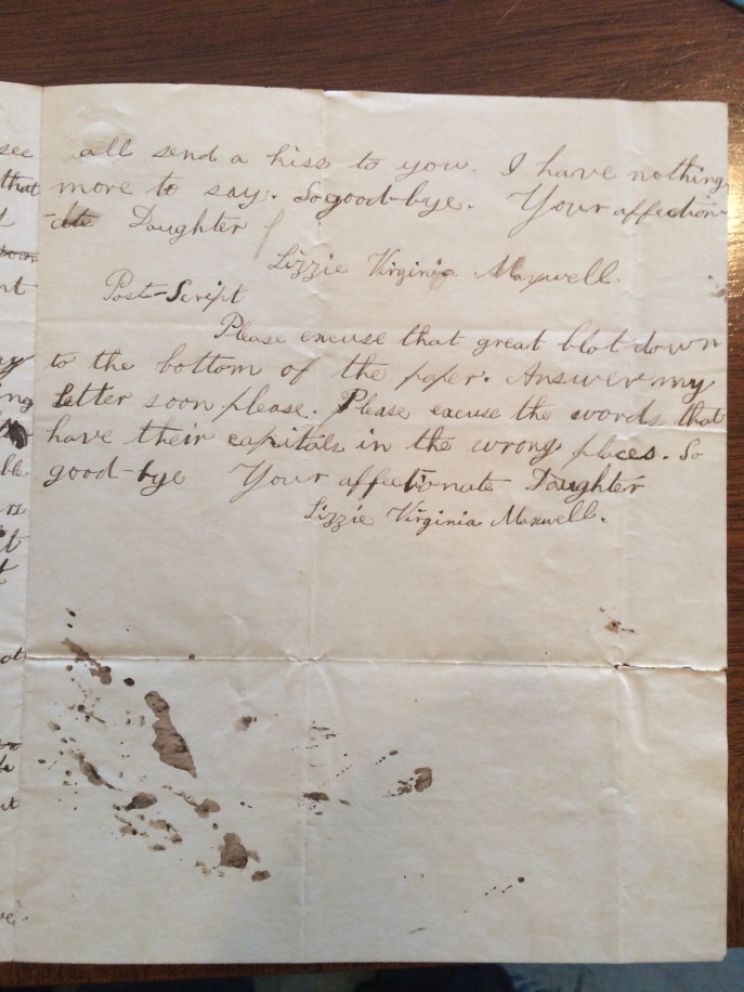 see
that
all send a kiss to you. I have nothing
more to say. So good-bye. Your affection-
-ate Daughter
Lizzie Virginia Maxwell.
Post-Script
Please excuse that great blot down
to the bottom of the paper. Answer my
letter soon please. Please excuse the words that
have their capitals in the wrong places. So
good-bye Your affectionate Daughter
Lizzie Virginia Maxwell.